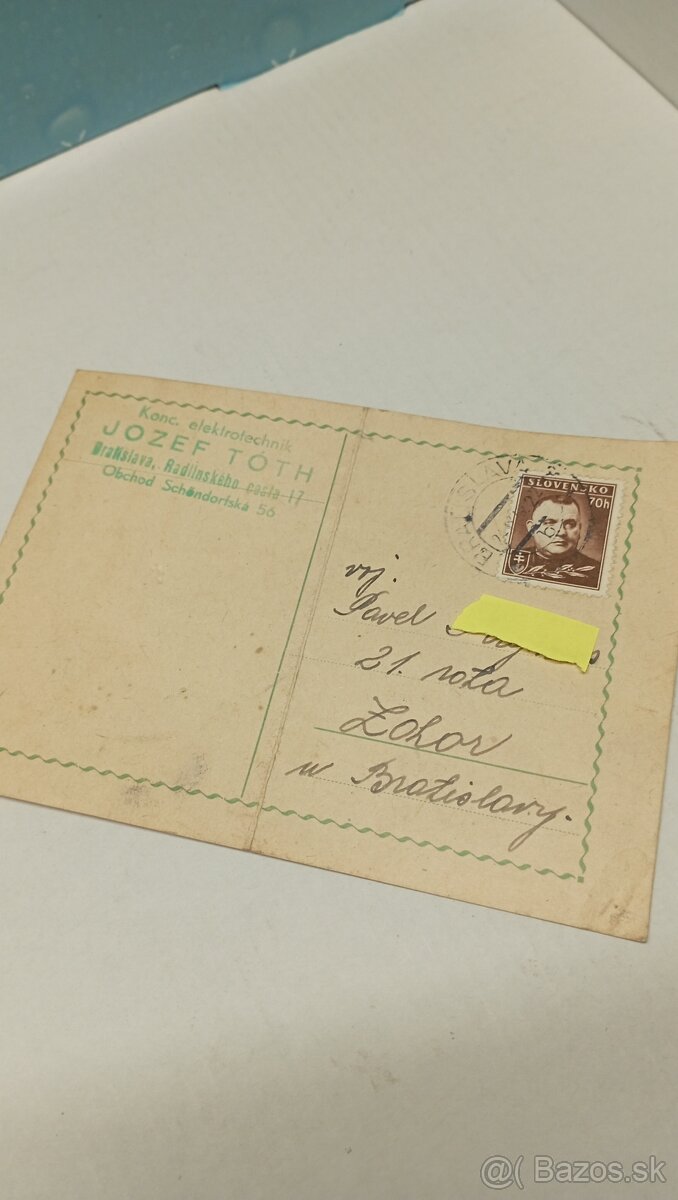 Konc. elektrotechnik
JOZEF TÓTH
Bratislava, Radlinského cesta 17
Obchod Schöndorfská 56
BRATISLAVA
SLOVENSKO
70h
voj.
Pavel
21. rota
Zohor
u Bratislavy.
@( Bazos.sk